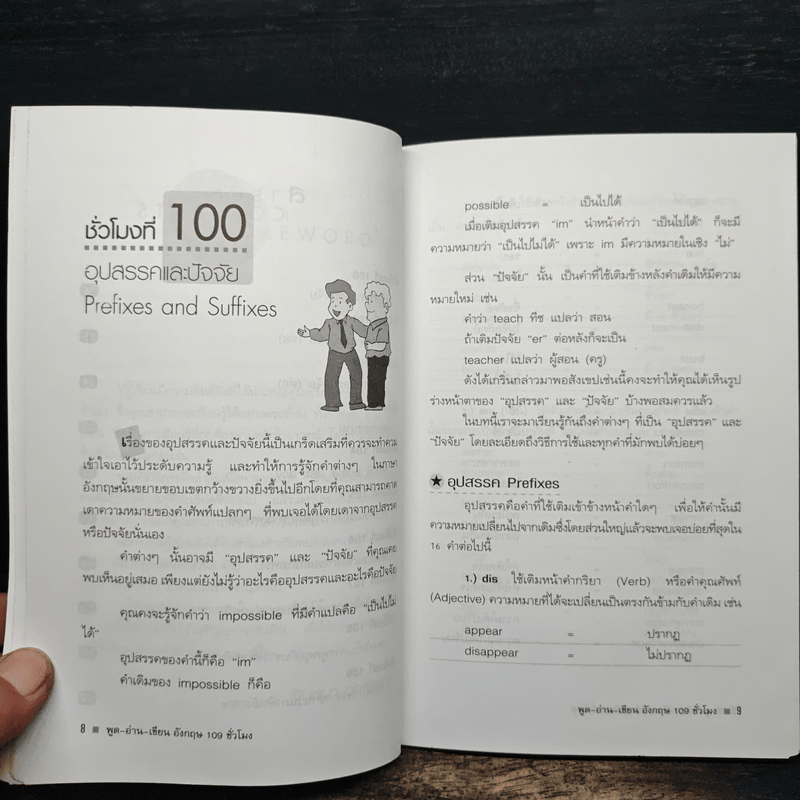 ชั่วโมงที่ 100
อุปสรรคและปัจจัย
Prefixes and Suffixes
เรื่องของอุปสรรคและปัจจัยนี้เป็นเกร็ดเสริมที่ควรจะทำความ
เข้าใจเอาไว้ประดับความรู้ และทำให้การรู้จักคำต่างๆ ในภาษา
อังกฤษนั้นขยายขอบเขตกว้างขวางยิ่งขึ้นไปอีกโดยที่คุณสามารถคาด
เดาความหมายของคำศัพท์แปลกๆ ที่พบเจอได้โดยเดาจากอุปสรรค
หรือปัจจัยนั่นเอง
คำต่างๆ นั้นอาจมี “อุปสรรค” และ “ปัจจัย” ที่คุณเคย
พบเห็นอยู่เสมอ เพียงแต่ยังไม่รู้ว่าอะไรคืออุปสรรคและอะไรคือปัจจัย
คุณคงจะรู้จักคำว่า impossible ที่มีคำแปลคือ “เป็นไปไม่
ได้”
อุปสรรคของคำนี้ก็คือ “im”
คำเดิมของ impossible ก็คือ
8 ■ พูด-อ่าน-เขียน อังกฤษ 109 ชั่วโมง
possible = เป็นไปได้
เมื่อเติมอุปสรรค “im” นำหน้าคำว่า “เป็นไปได้” ก็จะมี
ความหมายว่า “เป็นไปไม่ได้” เพราะ im มีความหมายในเชิง “ไม่”
ส่วน “ปัจจัย” นั้น เป็นคำที่ใช้เติมข้างหลังคำเดิมให้มีความ
หมายใหม่ เช่น
คำว่า teach ทีช แปลว่า สอน
ถ้าเติมปัจจัย “er” ต่อหลังก็จะเป็น
teacher แปลว่า ผู้สอน (ครู)
ดังได้เกริ่นกล่าวมาพอสังเขปเช่นนี้คงจะทำให้คุณได้เห็นรูป
ร่างหน้าตาของ “อุปสรรค” และ “ปัจจัย” บ้างพอสมควรแล้ว
ในบทนี้เราจะมาเรียนรู้กันถึงคำต่างๆ ที่เป็น “อุปสรรค” และ
“ปัจจัย” โดยละเอียดถึงวิธีการใช้และทุกคำที่มักพบได้บ่อยๆ
★ อุปสรรค Prefixes
อุปสรรคคือคำที่ใช้เติมเข้าข้างหน้าคำใดๆ เพื่อให้คำนั้นมี
ความหมายเปลี่ยนไปจากเดิมซึ่งโดยส่วนใหญ่แล้วจะพบเจอบ่อยที่สุดใน
16 คำต่อไปนี้
1.) dis ใช้เติมหน้าคำกริยา (Verb) หรือคำคุณศัพท์
(Adjective) ความหมายที่ได้จะเปลี่ยนเป็นตรงกันข้ามกับคำเดิม เช่น
appear = ปรากฏ
disappear = ไม่ปรากฏ
พูด-อ่าน-เขียน อังกฤษ 109 ชั่วโมง ■ 9